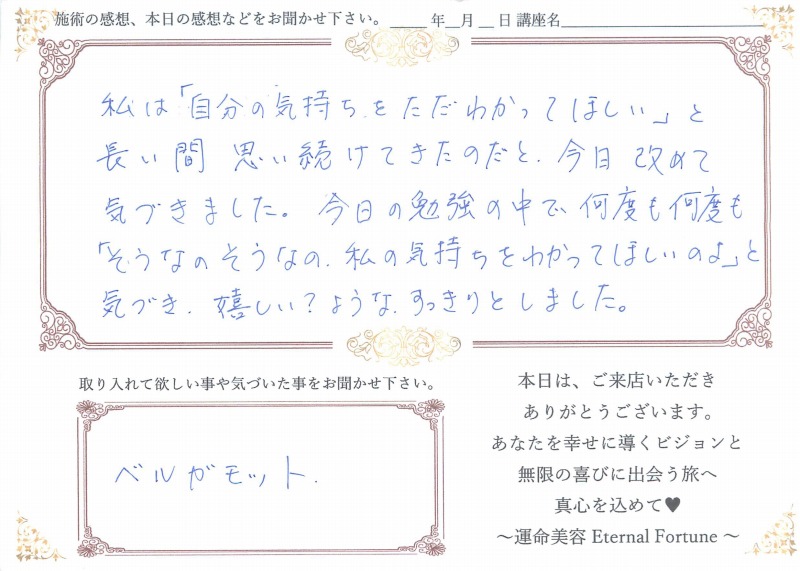 施術の感想、本日の感想などをお聞かせ下さい。 ____ 年__月__日 講座名____________________
私は「自分の気持ちをただわかってほしい」と
長い間 思い続けてきたのだと、今日 改めて
気づきました。今日の勉強の中で、何度も何度も
「そうなのそうなの、私の気持ちをわかってほしいのよ」と
気づき、嬉しい?ような、すっきりとしました。
取り入れて欲しい事や気づいた事をお聞かせ下さい。
ベルガモット.
本日は、ご来店いただき
ありがとうございます。
あなたを幸せに導くビジョンと
無限の喜びに出会う旅へ
真心を込めて♥
～運命美容 Eternal Fortune ～